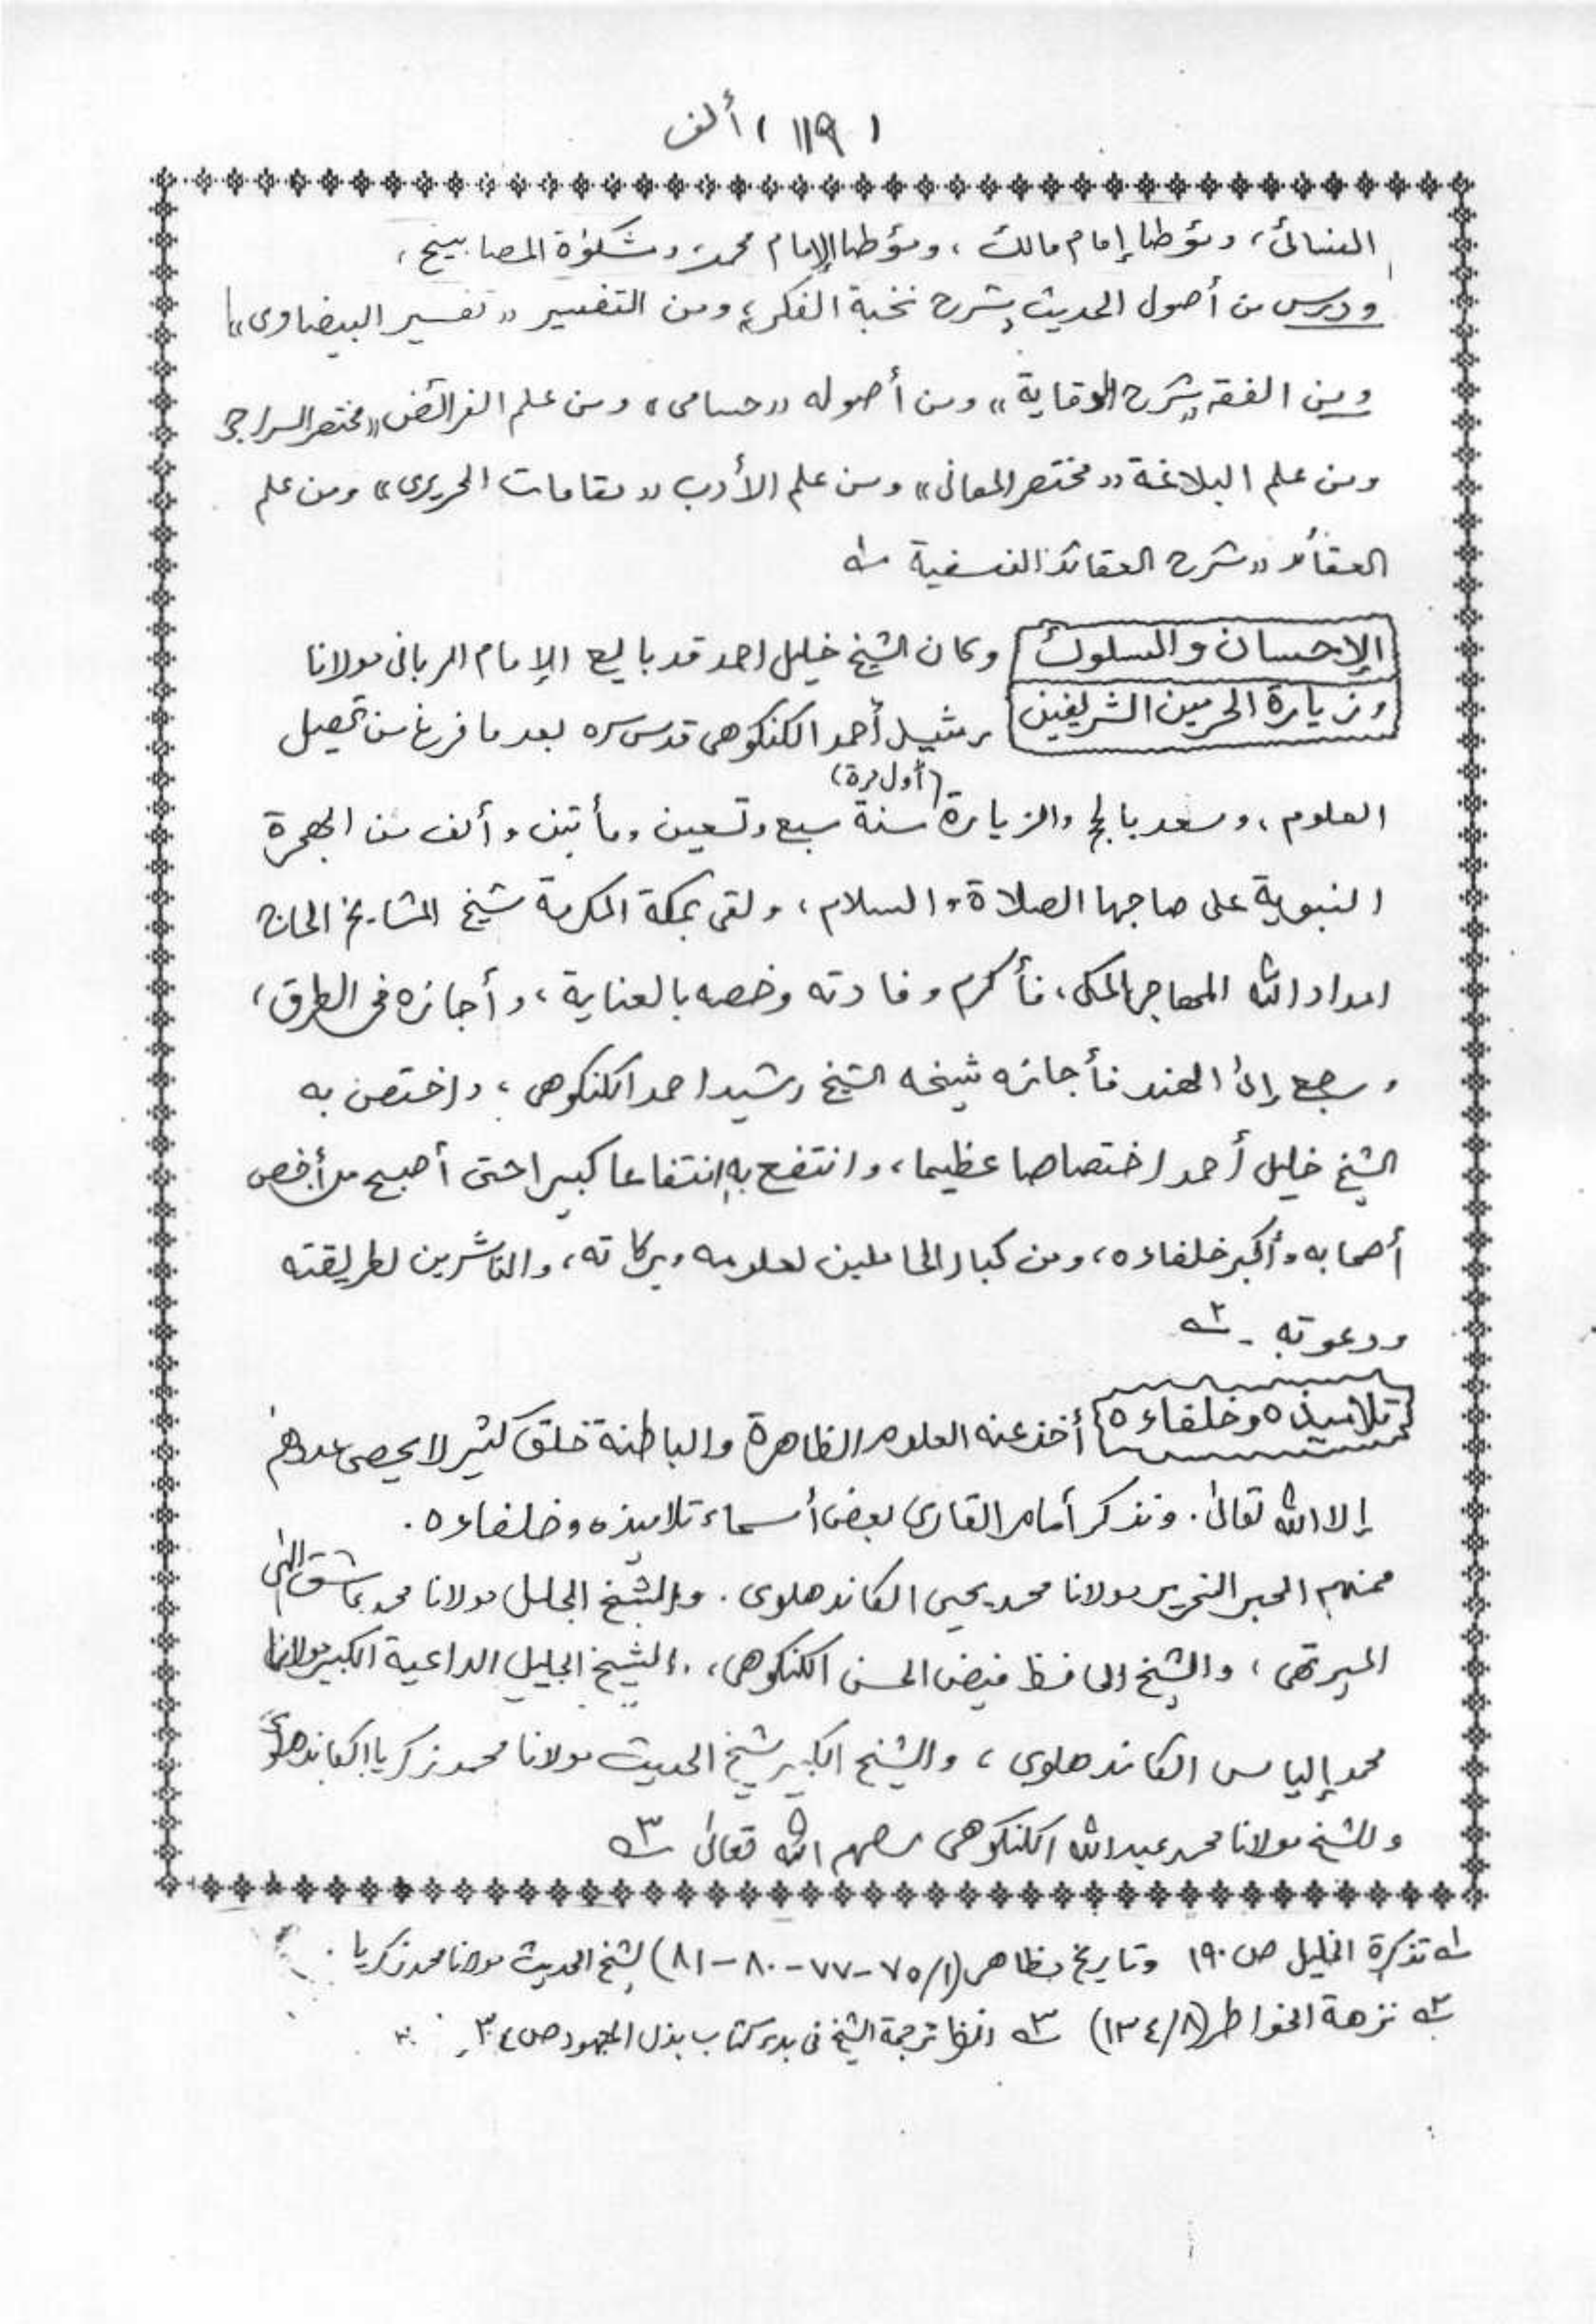 (١١٩) ألف
النسائى، ومؤطا إمام مالك، ومؤطا الإمام محمد، ومشكوٰة المصابيح،
ودرس من أصول الحديث «شرح نخبة الفكر» ومن التفسير «تفسير البيضاوى»
ومن الفقه «شرح الوقاية» ومن أصوله «حسامى» ومن علم الفرائض «مختصر السراجى
ومن علم البلاغة «مختصر المعانى» ومن علم الأدب «مقامات الحريرى» ومن علم
العقائد «شرح العقائد النسفية ١ـه
الإحسان والسلوك
وزيارة الحرمين الشريفين
وكان الشيخ خليل احمد قد بايع الإمام الربانى مولانا
رشيد أحمد الكنكوهى قدس سره بعد ما فرغ من تحصيل
العلوم، وسعد بالحج والزيارة (أول مرة) سنة سبع وتسعين ومأتين وألف من الهجرة
النبوية على صاحبها الصلاة والسلام، ولقى بمكة المكرمة شيخ المشايخ الحاج
امداد الله المهاجر المكى، فأكرم وفادته وخصه بالعناية، وأجازه فى الطرق،
ورجع إلى الهند فأجازه شيخه الشيخ رشيد احمد الكنكوهى، واختص به
الشيخ خليل أحمد اختصاصا عظيما، وانتفع به انتفاعا كبيرا حتى أصبح من أخص
أصحابه وأكبر خلفاءه، ومن كبار الحاملين لعلومه وبركاته، والناشرين لطريقته
ودعوته ـ ٢ـه
تلاميذه وخلفاءه
أخذ عنه العلوم الظاهرة والباطنة خلق كثير لا يحصى عددهم
إلا الله تعالىٰ. ونذكر أمام القارى بعض أسماء تلاميذه وخلفاءه.
فمنهم الحبر النحرير مولانا محمد يحيى الكاندهلوى. والشيخ الجليل مولانا محمد عاشق إلٰهى
الميرتهى، والشيخ الحافظ فيض الحسن الكنكوهى، والشيخ الجليل الداعية الكبير مولانا
محمد إلياس الكاندهلوى، والشيخ الكبير شيخ الحديث مولانا محمد زكريا الكاندهلوى
والشيخ مولانا محمد عبد الله الكنكوهى رحمهم الله تعالىٰ ٣ـه
١ـه تذكرة الخليل ص ١٩٠ وتاريخ مظاهر (١/٧٥-٧٧-٨٠-٨١) لشيخ الحديث مولانا محمد زكريا.
٢ـه نزهة الخواطر (٨/١٣٤) ٣ـه انظر ترجمة الشيخ فى بدء كتاب بذل المجهود ص